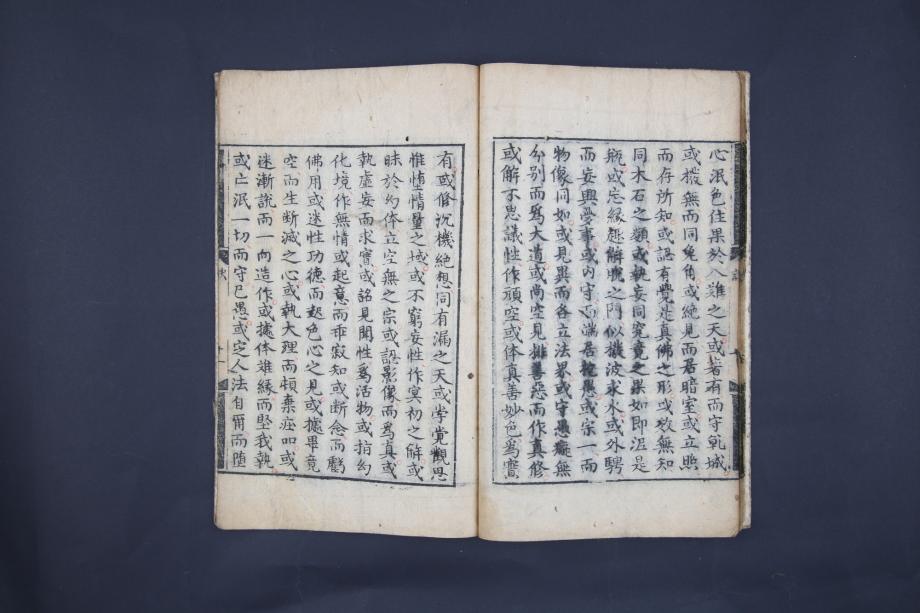 心泯色住果於八難之天或著有而守乹城
或撥無而同兔角或絕見而居暗室或立照
而存所知或認有覺是真佛之形或效無知
同木石之類或執妄同究竟之果如即泥是
瓶或忘緣趣解脫之門似撥波求水或外騁
而妄興夢事或內守而端居抱愚或宗一而
物像同如或見異而各立法界或守愚癡無
分別而爲大道或尚空見排善惡而作真修
或解不思議性作頑空或体真善妙色爲實
有或修沉機絕想同有漏之天或学覺觀思
惟墮情量之域或不窮妄性作冥初之解或
昧於幻体立空無之宗或認影像而爲真或
執虛妄而求實或認見聞性爲活物或指幻
化境作無情或起意而乖寂知或断念而虧
佛用或迷性功德而起色心之見或據畢竟
空而生断滅之心或執大理而頓棄庄吅或
迷漸說而一向造作或據体離緣而堅我執
或亡泯一切而守己愚或定人法自爾而墮